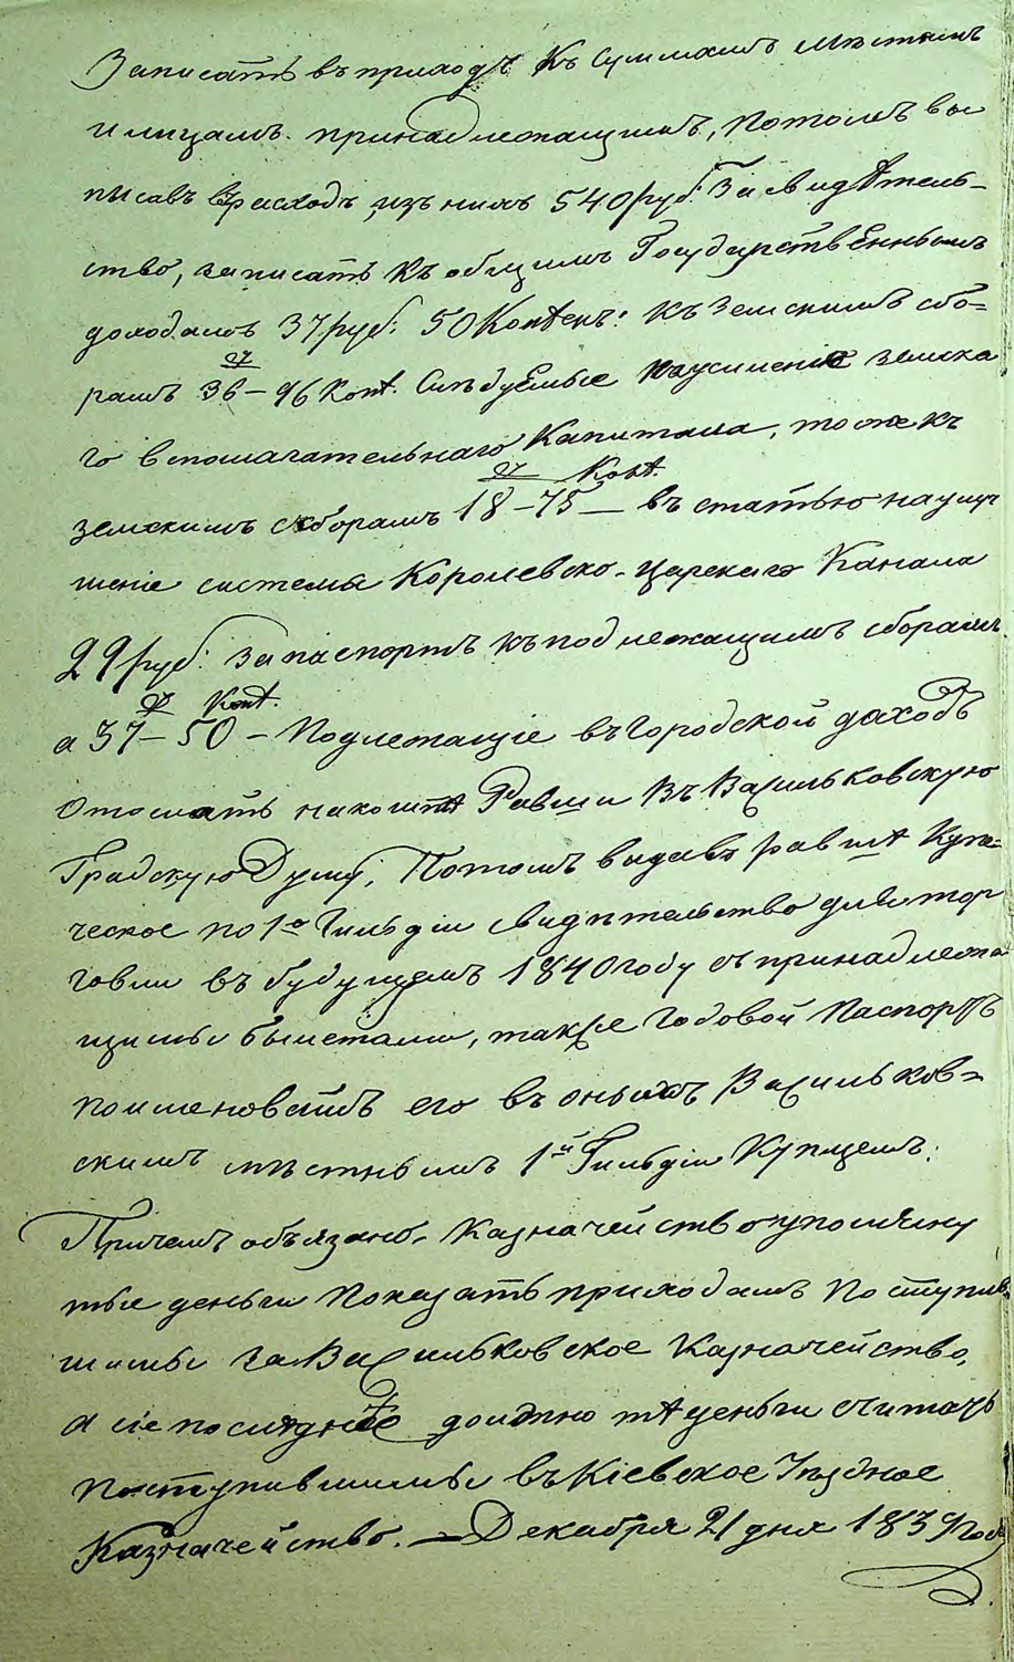 Записать въ приходъ къ суммамъ мѣстамъ
и лицамъ принадлежащимъ, потомъ вы
писавъ въ расходъ изъ нихъ 540 руб. За свидѣтель-
ство, записать къ общимъ Государственнымъ
доходамъ 37 руб: 50 копѣекъ: къ земскимъ сбо=
рамъ 36 – 96 коп. Слѣдуемые на усиленіе земска
го вспомагательнаго капитала, тоже къ
коп.
земскимъ сборамъ 18 – 75 – въ статью на улуч
шеніе системы Королевско-Царскаго Канала
29 руб: за паспортъ къ подлежащимъ сборамъ
коп.
а 37 – 50 – подлежащіе въ городской доходъ
отослать на кошт Равш и въ Васильковскую
Градскую Думу, Потомъ выдавъ равш купе=
ческое по 1о Гильдіи свидѣтельство для тор
говли въ будущемъ 1840 году съ принадлежа
щими билетами, также годовой паспортъ
поименовать его въ оныхъ Васильков=
скимъ мѣстнымъ 1й Гильдіи Купцемъ:
Причемъ обязано Казначейство упомяну
тые деньги показать приходомъ поступив=
шими за Васильковское Казначейство,
а сіе послѣднѣе должно тѣ деньги считать
поступившими въ Кіевское Уѣздное
Казначейство. – Декабря 21 дня 1839 года